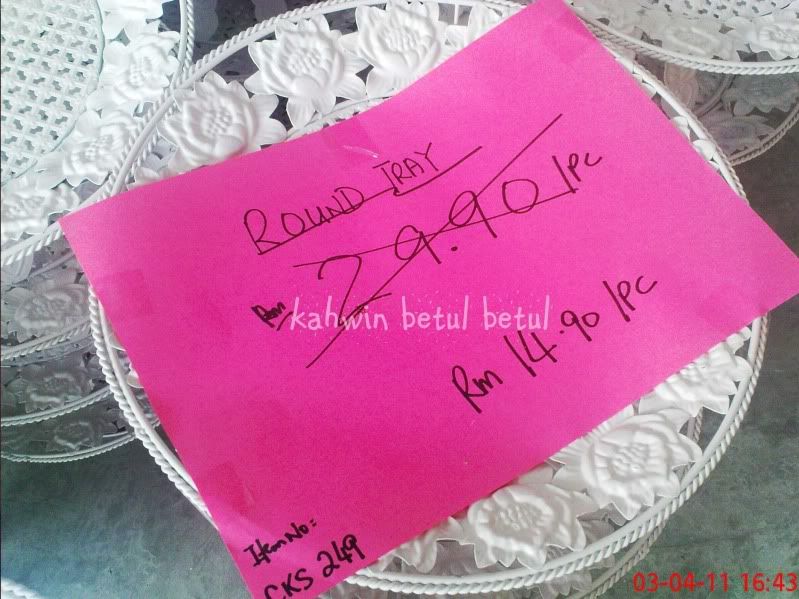 ROUND TRAY
Rm 29.90 /PC
kahwin betul betul
Rm 14.90 /PC
Item No:
CKS 249
03-04-11 16:43